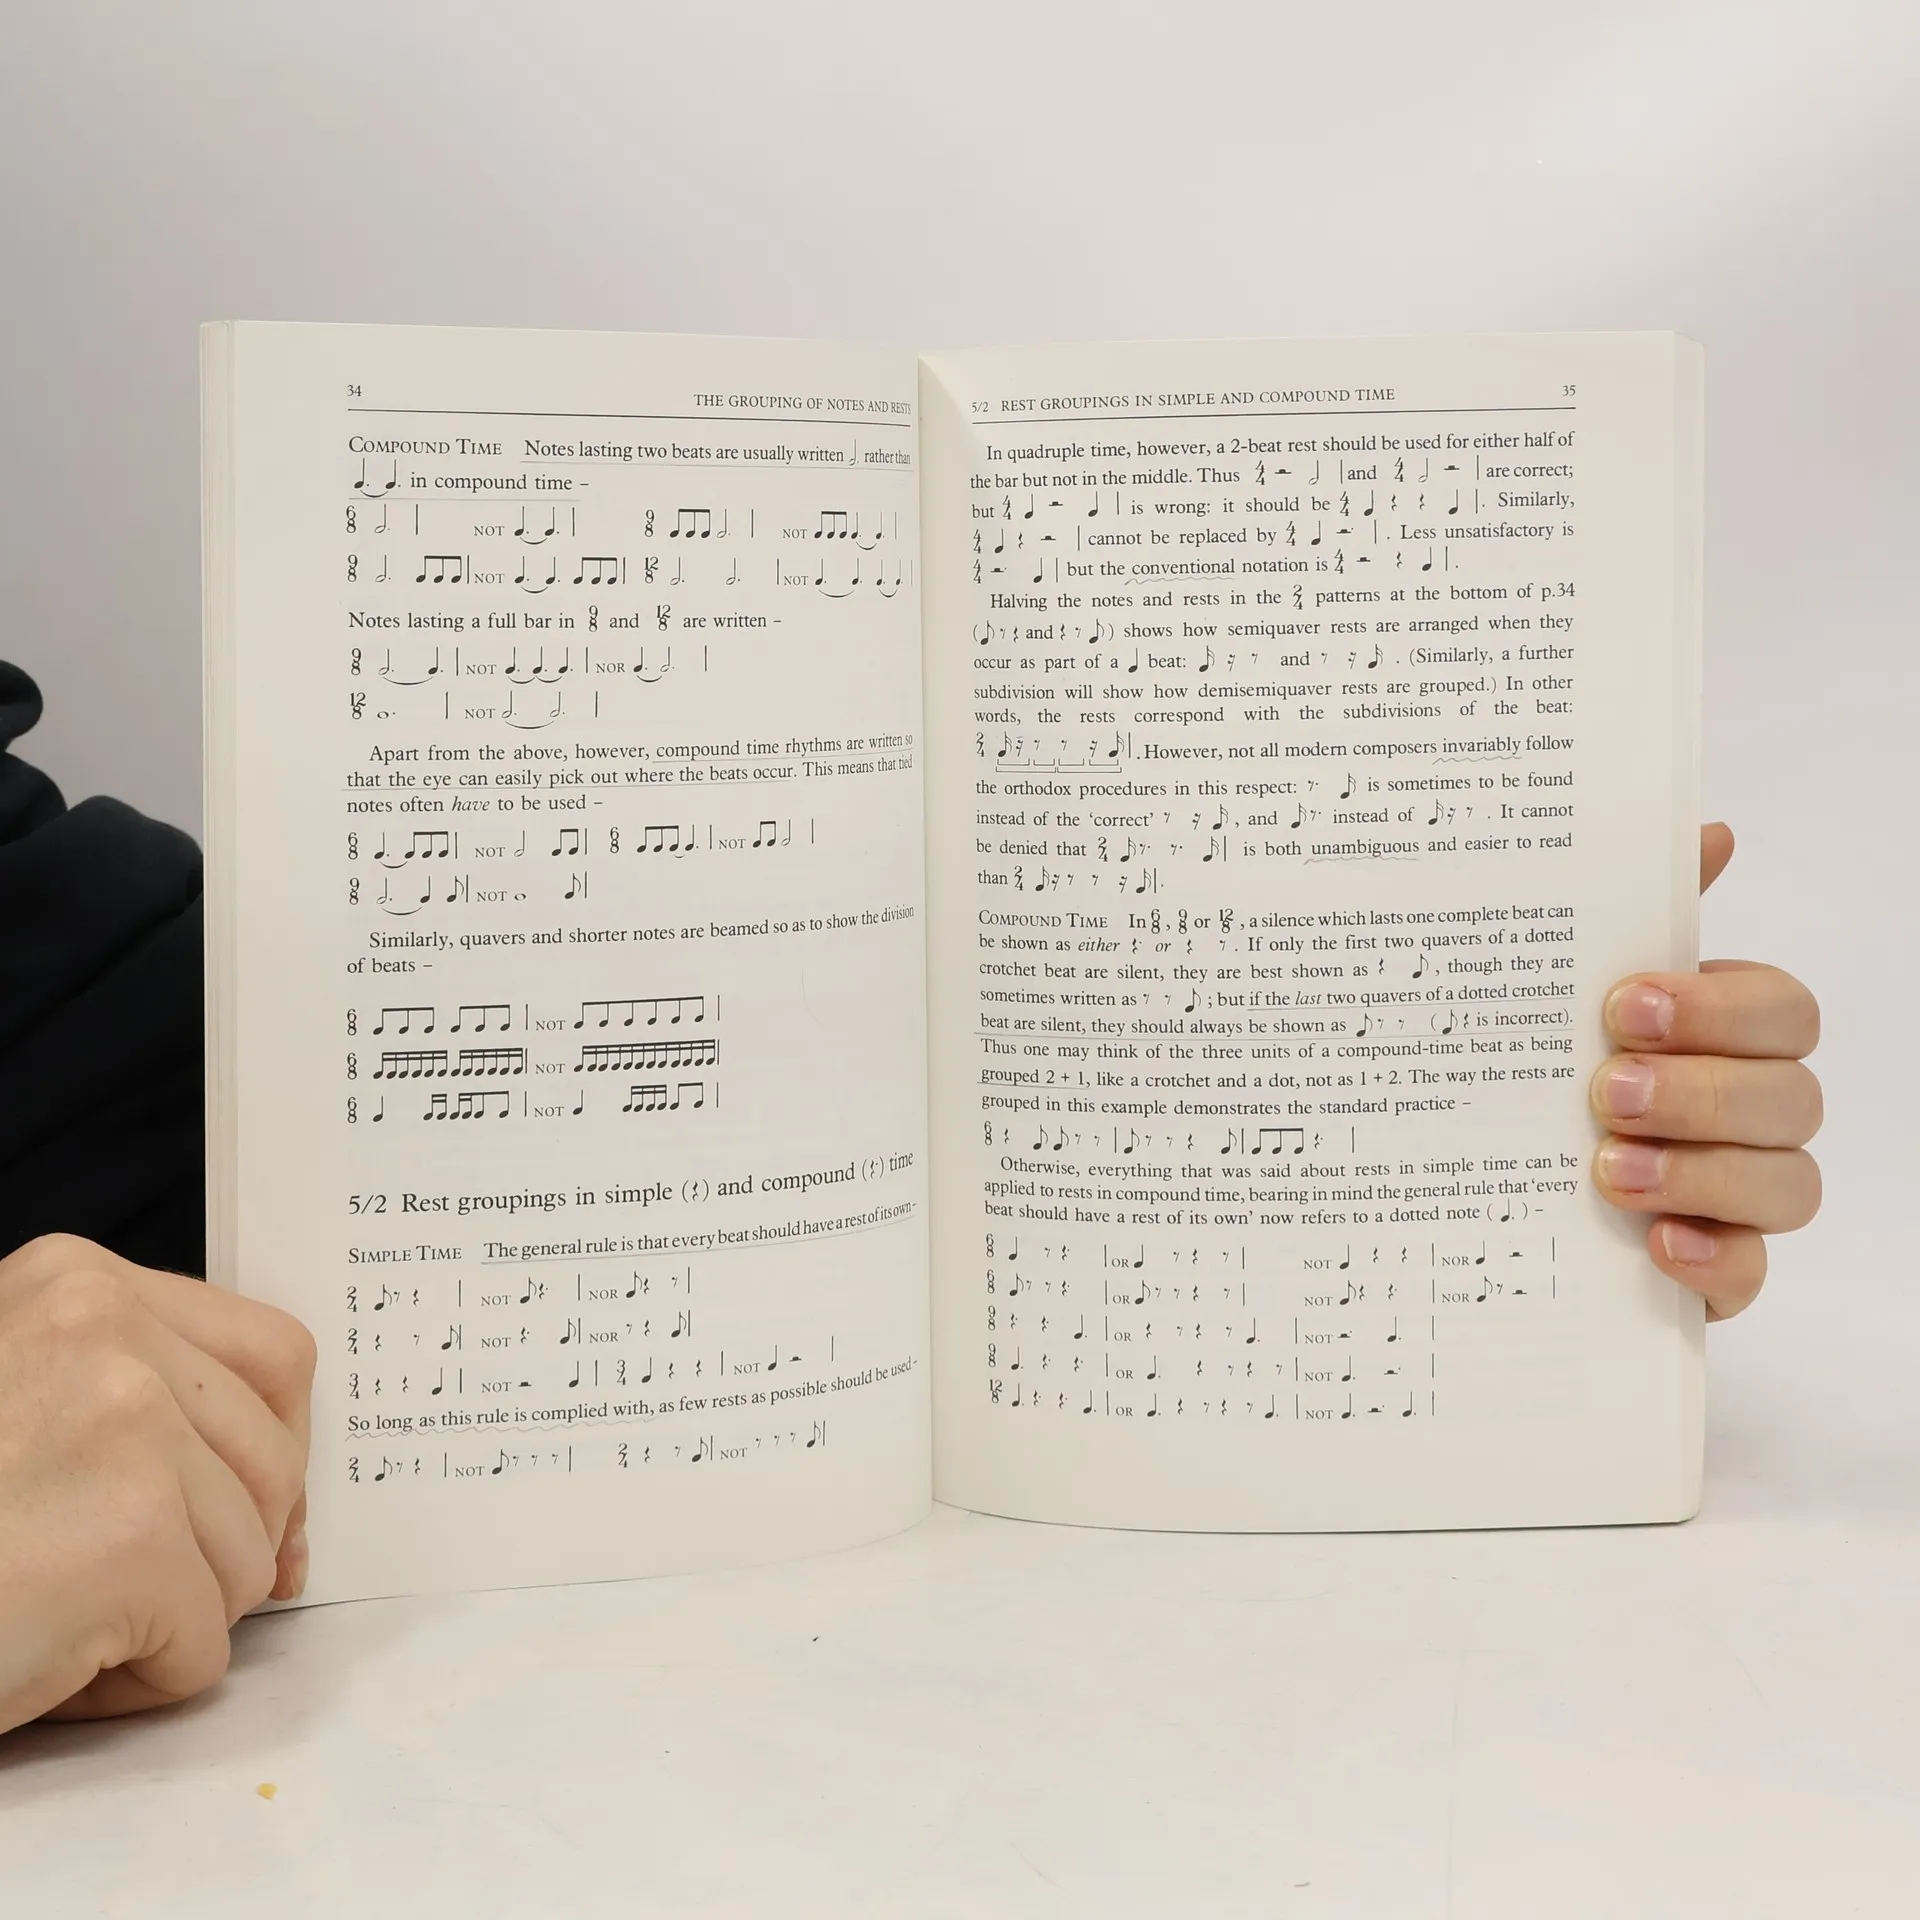 34
THE GROUPING OF NOTES AND RESTS
COMPOUND TIME Notes lasting two beats are usually written 𝅗𝅥. rather than
♩. ♩. in compound time –
6/8 𝅗𝅥. | NOT ♩. ♩. | 9/8 ♫♪ 𝅗𝅥. | NOT
9/8 NOT 12/8 NOT
Notes lasting a full bar in 9/8 and 12/8 are written –
9/8 NOT NOR
12/8 NOT
Apart from the above, however, compound time rhythms are written so
that the eye can easily pick out where the beats occur. This means that tied
notes often have to be used –
6/8 NOT 6/8 NOT
9/8 NOT
Similarly, quavers and shorter notes are beamed so as to show the division
of beats –
6/8 NOT
6/8 NOT
6/8 NOT
5/2 Rest groupings in simple (𝄽) and compound (𝄽.) time
SIMPLE TIME The general rule is that every beat should have a rest of its own–
2/4 NOT NOR
2/4 NOT NOR
3/4 NOT 3/4 NOT
So long as this rule is complied with, as few rests as possible should be used–
2/4 NOT 2/4 NOT
5/2 REST GROUPINGS IN SIMPLE AND COMPOUND TIME
35
In quadruple time, however, a 2-beat rest should be used for either half of
the bar but not in the middle. Thus 4/4 and 4/4 are correct;
but 4/4 is wrong: it should be 4/4 . Similarly,
4/4 cannot be replaced by 4/4 . Less unsatisfactory is
4/4 but the conventional notation is 4/4 .
Halving the notes and rests in the 2/4 patterns at the bottom of p.34
( and ) shows how semiquaver rests are arranged when they
occur as part of a ♩ beat: and . (Similarly, a further
subdivision will show how demisemiquaver rests are grouped.) In other
words, the rests correspond with the subdivisions of the beat:
2/4 . However, not all modern composers invariably follow
the orthodox procedures in this respect: is sometimes to be found
instead of the ‘correct’ , and instead of . It cannot
be denied that 2/4 is both unambiguous and easier to read
than 2/4 .
COMPOUND TIME In 6/8, 9/8 or 12/8, a silence which lasts one complete beat can
be shown as either 𝄽. or 𝄽 𝄾 . If only the first two quavers of a dotted
crotchet beat are silent, they are best shown as 𝄽 ♪, though they are
sometimes written as 𝄾 𝄾 ♪; but if the last two quavers of a dotted crotchet
beat are silent, they should always be shown as ♪ 𝄾 𝄾 (♪ 𝄽 is incorrect).
Thus one may think of the three units of a compound-time beat as being
grouped 2 + 1, like a crotchet and a dot, not as 1 + 2. The way the rests are
grouped in this example demonstrates the standard practice –
6/8
Otherwise, everything that was said about rests in simple time can be
applied to rests in compound time, bearing in mind the general rule that ‘every
beat should have a rest of its own’ now refers to a dotted note (♩.) –
6/8 OR NOT NOR
6/8 OR NOT NOR
9/8 OR NOT
9/8 OR NOT
12/8 OR NOT